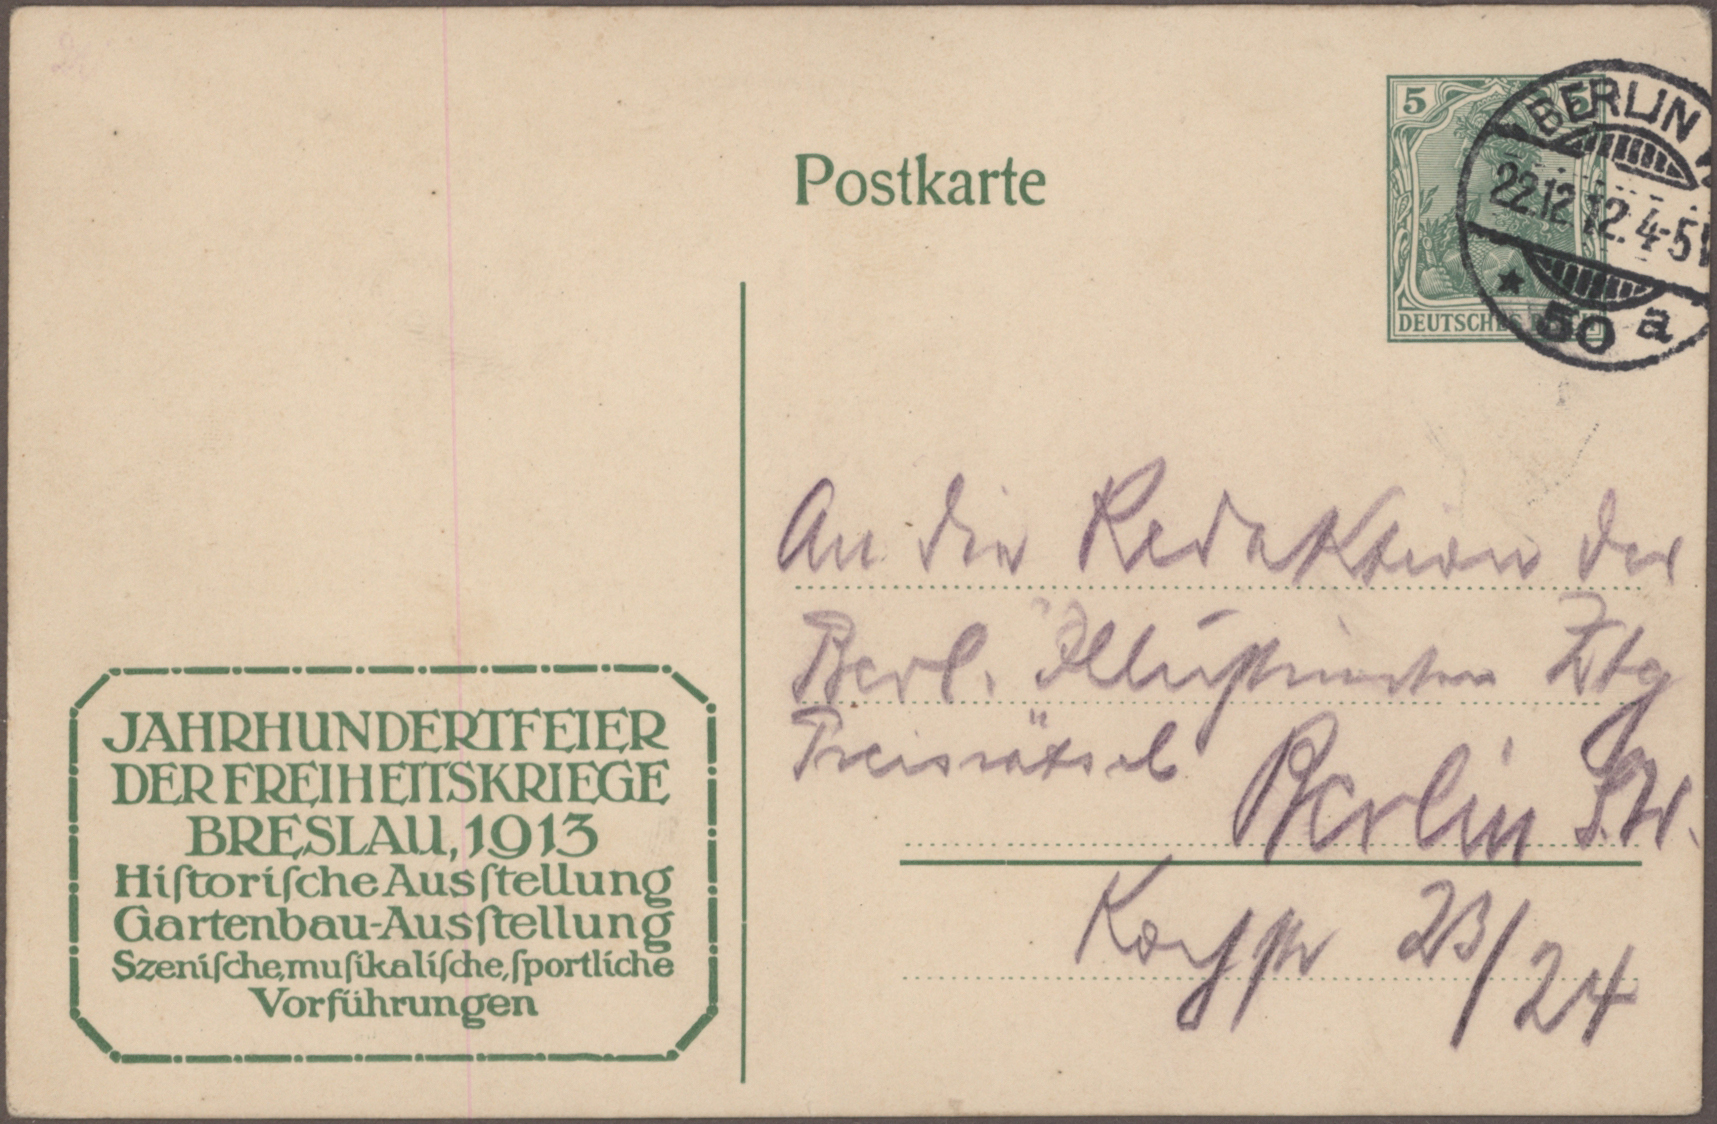 Postkarte
5 5
DEUTSCHES REICH
BERLIN
22.12.12.4-5V
* 50 a
An die Redaktion der
Berl. Illustrierten Ztg
Preisrätsel Berlin S.W.
Kochstr 23/24
JAHRHUNDERTFEIER
DER FREIHEITSKRIEGE
BRESLAU, 1913
Hiſtoriſche Ausſtellung
Gartenbau-Ausſtellung
Szeniſche, muſikaliſche, ſportliche
Vorführungen